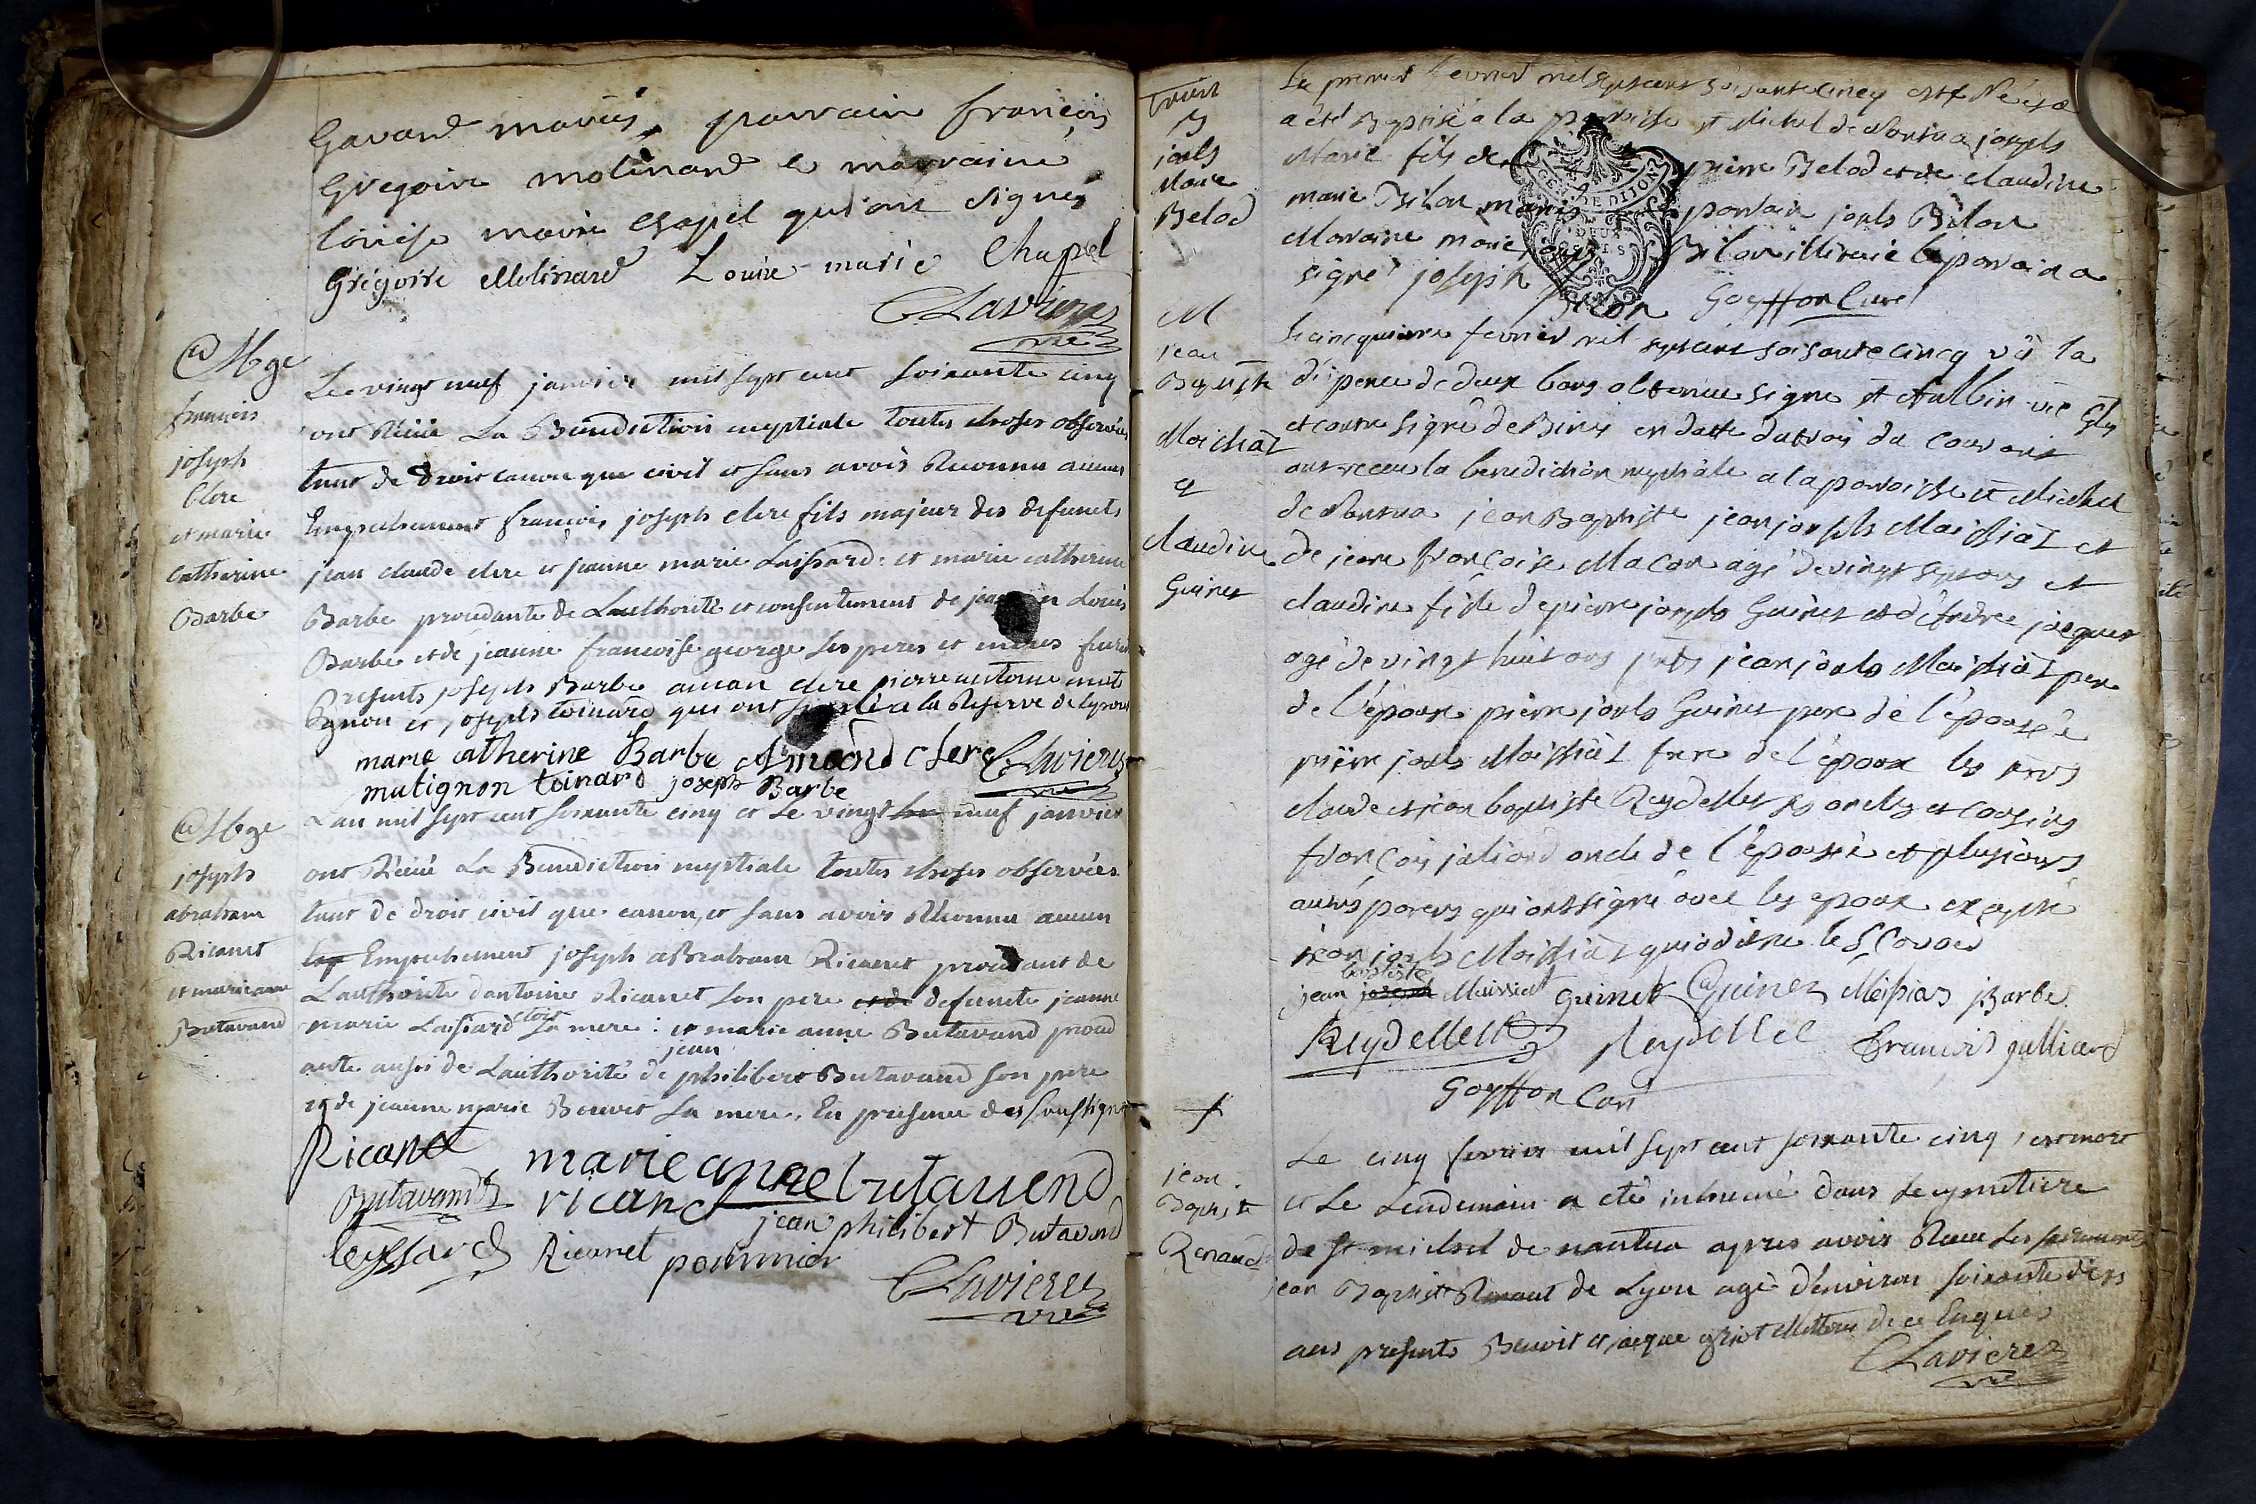 Gavand mariés, parrain francois
Gregoire molinard e marraine
louise marie chapel qui ont signés
Grégoire Molinard Louise marie Chapel
CLavieres
vic
Mge
francois
joseph
Clere
et marie
Catherine
Barbe
Le vingt neuf janvier mil sept cent soixante cinq
ont Récüe La Benediction nuptiale toutes choses observées
tant de droit canon que civil et sans avoir Reconnu aucun
Empechement francois joseph clere fils majeur des defuncts
jean claude clere et jeanne marie Laissard : et marie catherine
Barbe procedante de Lauthorité et consentement de Louis
Barbe et de jeanne francoise george ses peres et meres furent
Presents joseph Barbe aman clere pierre antoine muti
Gnon et joseph toinard qui ont signé a la Reserve de Lepoux
marie catherine Barbe Amand clere CLavieres
mutignon toinard joseph Barbe vic
Mge
joseph
abraham
Ricanet
et marieanne
Butavand
Lan mil sept cent soixante cinq et Le vingt neuf janvier
ont Récüe La Benediction nuptiale toutes choses observées
tant de droit civil que canon, et sans avoir Reconnu aucun
Empechement joseph abraham Ricanet procedant de
Lauthorité dantoine Ricanet son pere et de defuncte jeanne
marie Laissard sa mere : et marie anne Butavand proced
ante aussi de Lauthorité de jean philibert Butavand son pere
et de jeanne marie Bouvet sa mere. En presence des soussignés
Ricanet marie anne butavend
Butavand ricanet
jean philibert Butavand
leyssard Ricanet pommier
CLavieres
vic
B
josph
Marie
Belod
Le premier fevrier mil sept cent soisante cincq est né et a
a été Baptisé a la paroisse st Michel de Nantua joseph
Marie fils de pierre Belod et de claudine
marie Bilon mariés parrain joseph Bilon
Maraine marie Bilon illiterée le parrain a
signé joseph Bilon Goyffon Curé
GEN DE DIJON
DEUX
M
jean
Baptiste
Moissiat
et
claudine
Guinet
le cincquieme fevrier mil sept cent soisante cincq vû la
dispence de deux bans obtenue signé st Aulbin vic Gl
et contre signé de Biny en datte du trois du courant
ont receu la benediction nuptiale a la paroisse st Michel
de Nantua jean Baptiste jean joseph Moissiat et
de jeane françoise Macon agé de vingt sept ans et
claudine fille de pierre joseph Guinet et d'
agé de vingt huit ans jean joseph Moissiat pere
de l'époux pierre joseph Guinet pere de l'épousée
pierre joseph Moissiat frere de l'époux les srs
claude et jean baptiste Reydellet ses oncles et cousins
françois juliard oncle de l'épousée et plusieurs
autres parens qui ont signé avec les epoux excepté
jean joseph Moissiat
jean joseph baptiste Moissiat guinet Guinet Moissias jBarbe
Reydellet Reydellet Francois julliard
Goyffon Curé
f
jean
Baptiste
Renaud
Le cinq fevrier mil sept cent soixante cinq est mort
et Le Lendemain a eté inhumé dans Le cymetiere
de st michel de nantua apres avoir Recu Les sacrements
jean Baptiste Renaut de Lyon agé denviron soixante dix
ans presents Benoit et jacque
CLavieres
vic